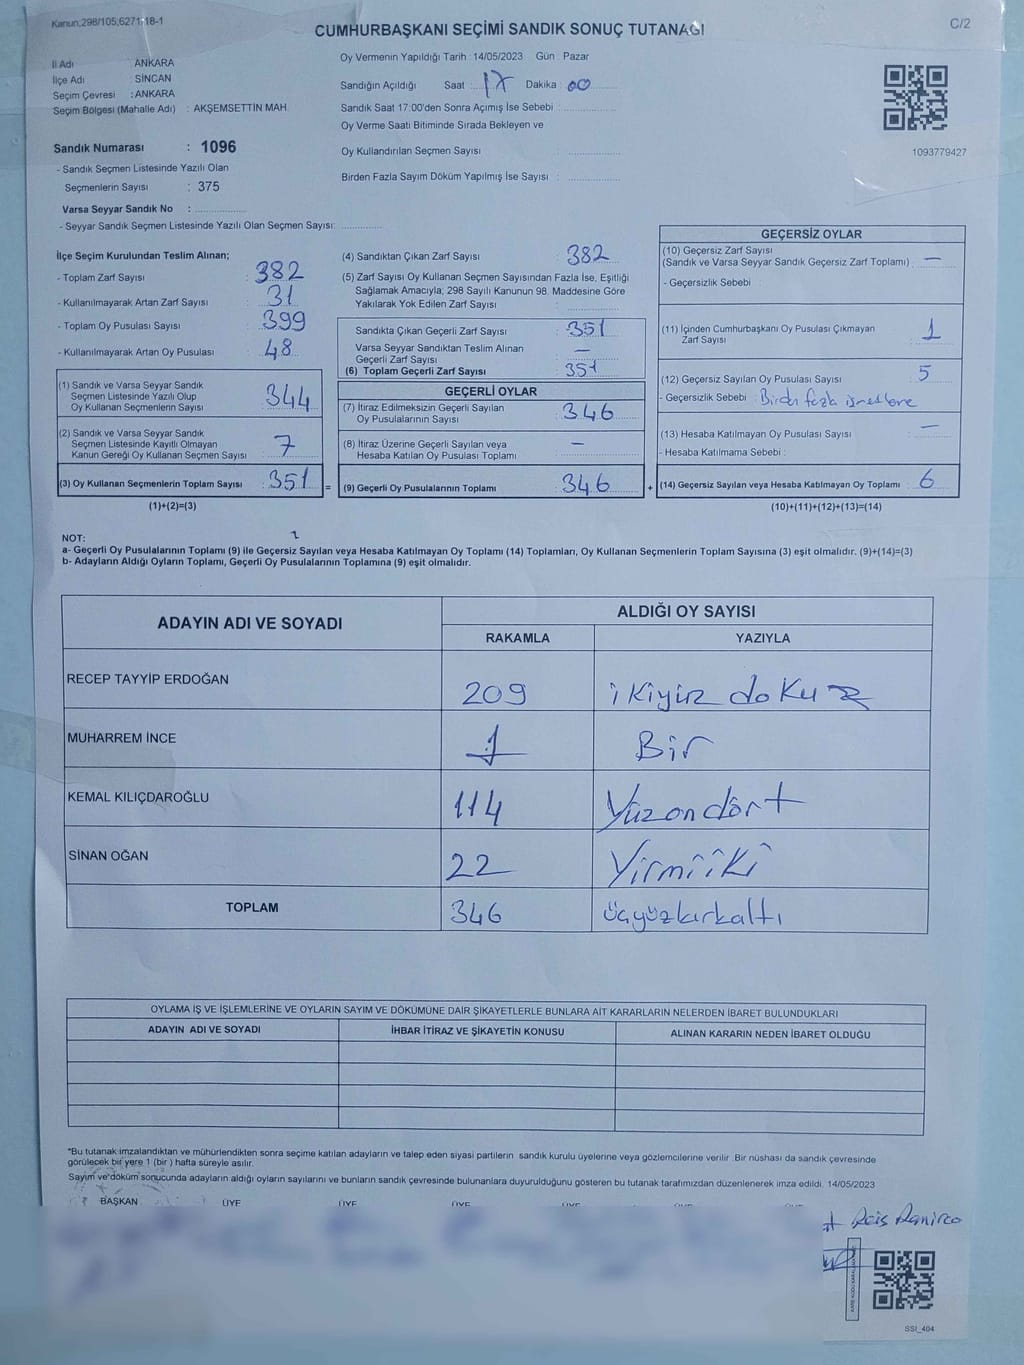 Kanun,298/105,6271/18-1
C/2
CUMHURBAŞKANI SEÇİMİ SANDIK SONUÇ TUTANAĞI
İl Adı : ANKARA
İlçe Adı : SİNCAN
Seçim Çevresi : ANKARA
Seçim Bölgesi (Mahalle Adı) : AKŞEMSETTİN MAH.
Sandık Numarası : 1096
- Sandık Seçmen Listesinde Yazılı Olan
Seçmenlerin Sayısı : 375
Varsa Seyyar Sandık No :
- Seyyar Sandık Seçmen Listesinde Yazılı Olan Seçmen Sayısı:
Oy Vermenin Yapıldığı Tarih : 14/05/2023 Gün : Pazar
Sandığın Açıldığı Saat : 17 Dakika : 00
Sandık Saat 17:00'den Sonra Açımış İse Sebebi :
Oy Verme Saati Bitiminde Sırada Bekleyen ve
Oy Kullandırılan Seçmen Sayısı :
Birden Fazla Sayım Döküm Yapılmış İse Sayısı :
1093779427
İlçe Seçim Kurulundan Teslim Alınan;
- Toplam Zarf Sayısı : 382
- Kullanılmayarak Artan Zarf Sayısı : 31
- Toplam Oy Pusulası Sayısı : 399
- Kullanılmayarak Artan Oy Pusulası : 48
(1) Sandık ve Varsa Seyyar Sandık
Seçmen Listesinde Yazılı Olup
Oy Kullanan Seçmenlerin Sayısı : 344
(2) Sandık ve Varsa Seyyar Sandık
Seçmen Listesinde Kayıtlı Olmayan
Kanun Gereği Oy Kullanan Seçmen Sayısı : 7
(3) Oy Kullanan Seçmenlerin Toplam Sayısı : 351 =
(1)+(2)=(3)
(4) Sandıktan Çıkan Zarf Sayısı : 382
(5) Zarf Sayısı Oy Kullanan Seçmen Sayısından Fazla İse, Eşitliği
Sağlamak Amacıyla; 298 Sayılı Kanunun 98. Maddesine Göre
Yakılarak Yok Edilen Zarf Sayısı :
Sandıkta Çıkan Geçerli Zarf Sayısı : 351
Varsa Seyyar Sandıktan Teslim Alınan
Geçerli Zarf Sayısı : —
(6) Toplam Geçerli Zarf Sayısı : 351
GEÇERLİ OYLAR
(7) İtiraz Edilmeksizin Geçerli Sayılan
Oy Pusulalarının Sayısı : 346
(8) İtiraz Üzerine Geçerli Sayılan veya
Hesaba Katılan Oy Pusulası Toplamı : —
(9) Geçerli Oy Pusulalarının Toplamı : 346 +
GEÇERSİZ OYLAR
(10) Geçersiz Zarf Sayısı
(Sandık ve Varsa Seyyar Sandık Geçersiz Zarf Toplamı) : —
- Geçersizlik Sebebi :
(11) İçinden Cumhurbaşkanı Oy Pusulası Çıkmayan
Zarf Sayısı : 1
(12) Geçersiz Sayılan Oy Pusulası Sayısı : 5
- Geçersizlik Sebebi : Birden fazla
(13) Hesaba Katılmayan Oy Pusulası Sayısı : —
- Hesaba Katılmama Sebebi :
(14) Geçersiz Sayılan veya Hesaba Katılmayan Oy Toplamı : 6
(10)+(11)+(12)+(13)=(14)
NOT:
a- Geçerli Oy Pusulalarının Toplamı (9) ile Geçersiz Sayılan veya Hesaba Katılmayan Oy Toplamı (14) Toplamları, Oy Kullanan Seçmenlerin Toplam Sayısına (3) eşit olmalıdır. (9)+(14)=(3)
b- Adayların Aldığı Oyların Toplamı, Geçerli Oy Pusulalarının Toplamına (9) eşit olmalıdır.
ADAYIN ADI VE SOYADI ALDIĞI OY SAYISI
RAKAMLA YAZIYLA
RECEP TAYYİP ERDOĞAN 209 ikiyüz dokuz
MUHARREM İNCE 1 Bir
KEMAL KILIÇDAROĞLU 114 Yüzondört
SİNAN OĞAN 22 Yirmiiki
TOPLAM 346 üçyüzkırkaltı
OYLAMA İŞ VE İŞLEMLERİNE VE OYLARIN SAYIM VE DÖKÜMÜNE DAİR ŞİKAYETLERLE BUNLARA AİT KARARLARIN NELERDEN İBARET BULUNDUKLARI
ADAYIN ADI VE SOYADI İHBAR İTİRAZ VE ŞİKAYETİN KONUSU ALINAN KARARIN NEDEN İBARET OLDUĞU
*Bu tutanak imzalandıktan ve mühürlendikten sonra seçime katılan adayların ve talep eden siyasi partilerin sandık kurulu üyelerine veya gözlemcilerine verilir .Bir nüshası da sandık çevresinde
görülecek bir yere 1 (bir ) hafta süreyle asılır.
Sayım ve döküm sonucunda adayların aldığı oyların sayılarını ve bunların sandık çevresinde bulunanlara duyurulduğunu gösteren bu tutanak tarafımızdan düzenlenerek imza edildi. 14/05/2023
BAŞKAN ÜYE ÜYE ÜYE ÜYE ÜYE ÜYE
SSİ_404